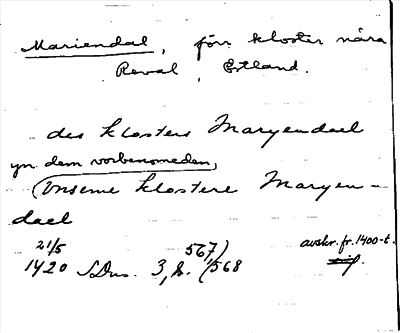 Mariendal, förr kloster nära
Reval, Estland.
des klosters Maryendael
yn dem vorbenomeden,
(Unseme klostere Maryen-
dael
21/5 567,) avskr. fr. 1400-t.
1420 SDns. 3, s. (568